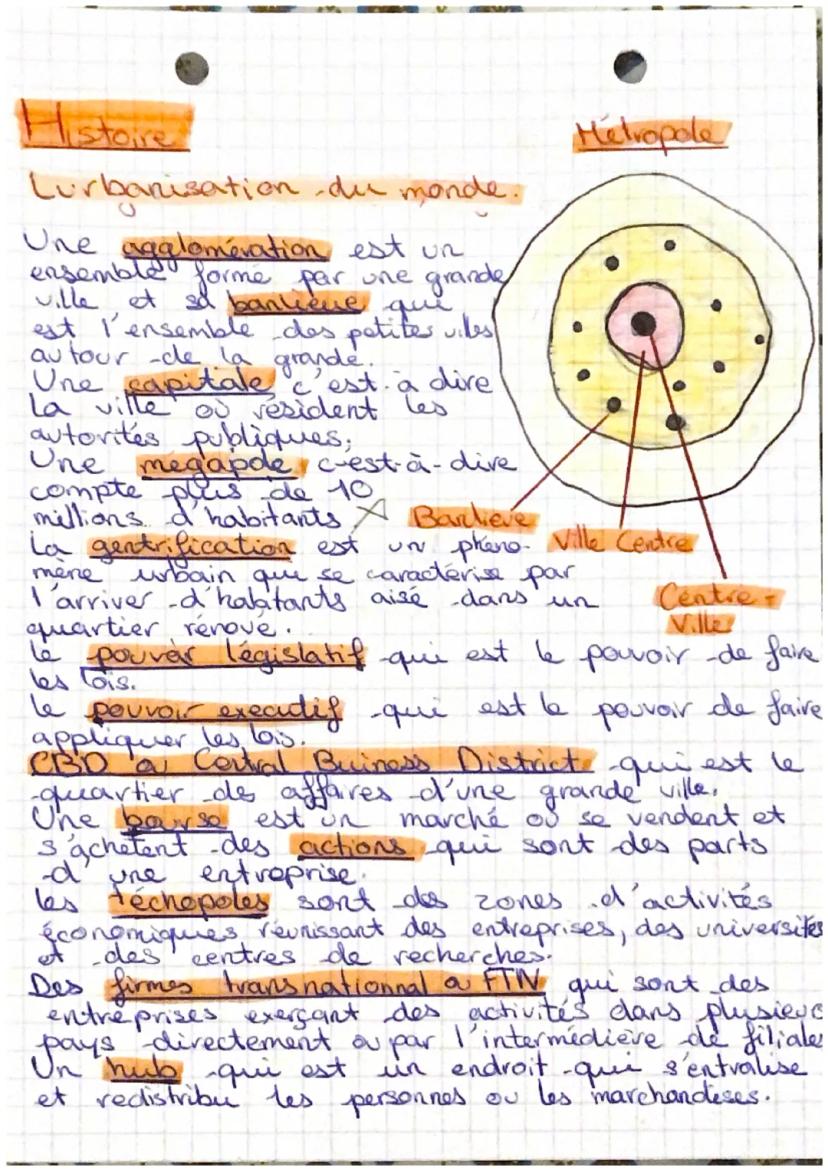 Histoire
Métropole
L'urbanisation du monde.
Une agglomération est un
ensemble formé par une grande
ville et sa banlieue qui
est l'ensemble des petites viles
autour de la grande.
Une capitale c'est à dire
la ville où résident les
autorités publiques.
Une mégapole, c'est-à-dire
compte plus de 10
millions d'habitants
La gentrification est un phéno-
mène urbain qui se caractérise par
l'arriver d'habitants aisé dans un
quartier rénové.
Banlieue
Ville Centre
Centre-
Ville
Le pouvoir législatif qui est le pouvoir de faire
les lois.
Le pouvoir executif qui est le pouvoir de faire
appliquer les lois.
CBD ou Central Buiness District qui est le
quartier des affaires d'une grande ville.
Une bourse est un marché où se vendent et
s'achètent des actions qui sont des parts
d'une entreprise.
Les téchopoles sont des zones d'activités
économiques réunissant des entreprises, des universités
et des centres de recherches.
Des firmes transnationnal ou FTN qui sont des
entreprises exerçant des activités dans plusieurs
pays directement ou par l'intermédière de filiales
Un hub qui est un endroit qui s'entralise
et redistribu les personnes ou les marchandises.